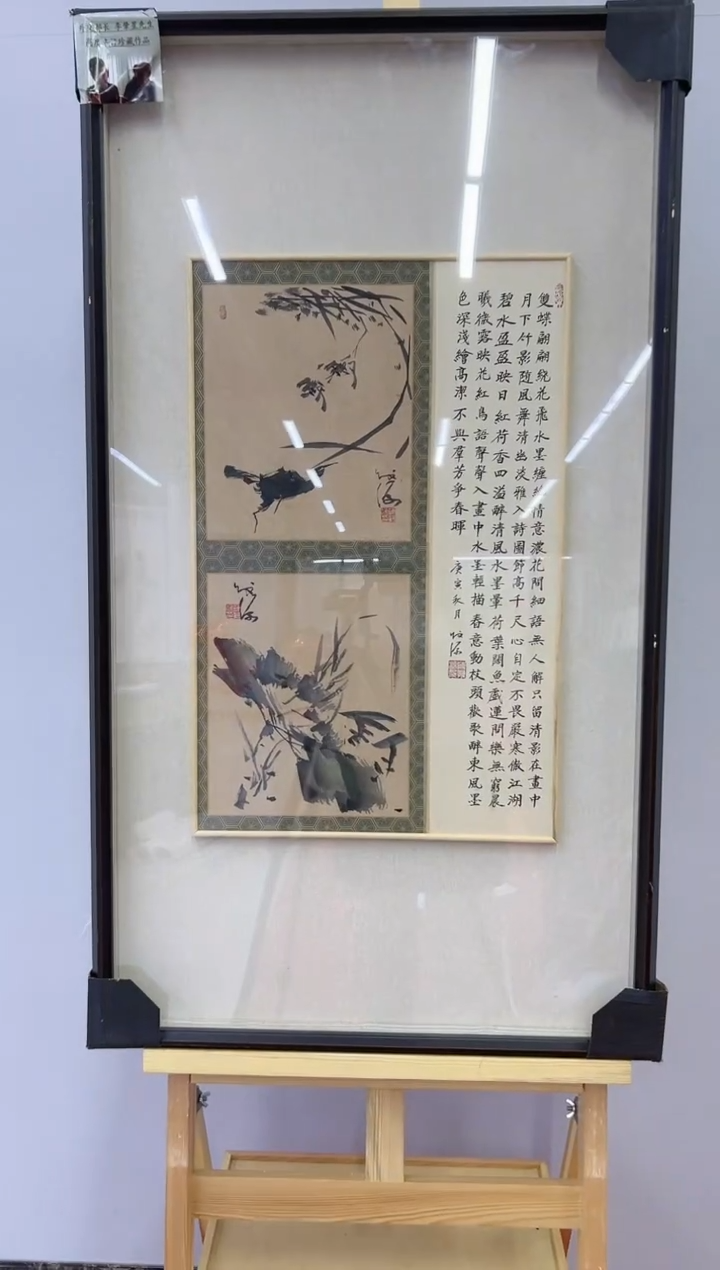 李肇星先生
珍藏作品
雙蝶翩翩繞花飛水墨纏綿情意濃花間細語無人解只留清影在畫中
月下竹影随風舞清出淡雅入詩圖節高千尺心自定不畏嚴寒傲江湖
碧水盈盈映日紅荷香四溢醉清風水墨暈荷葉闊魚戲蓮間樂無窮晨
曦微露映花紅鳥語聲聲入畫中水墨輕描春意動枝頭歡聚醉東風墨
色深淺繪高潔不與羣芳爭春暉
庚寅秋月